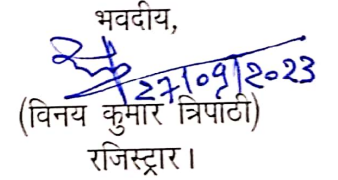 भवदीय,
27/09/2023
(विनय कुमार त्रिपाठी)
रजिस्ट्रार।